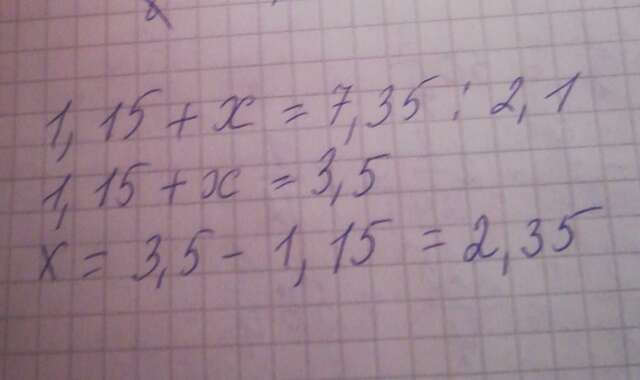 1,15 + x = 7,35 : 2,1
1,15 + x = 3,5
x = 3,5 - 1,15 = 2,35